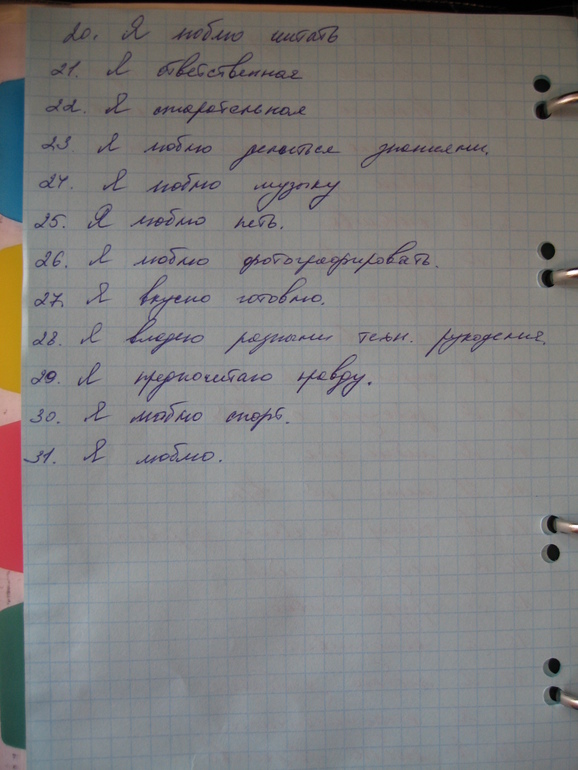 20. Я люблю читать
21. Я ответственная
22. Я старательная
23. Я люблю делиться знаниями.
24. Я люблю музыку
25. Я люблю петь.
26. Я люблю фотографировать.
27. Я вкусно готовлю.
28. Я владею разными техн. рукоделия.
29. Я предпочитаю правду.
30. Я люблю спорт.
31. Я люблю.